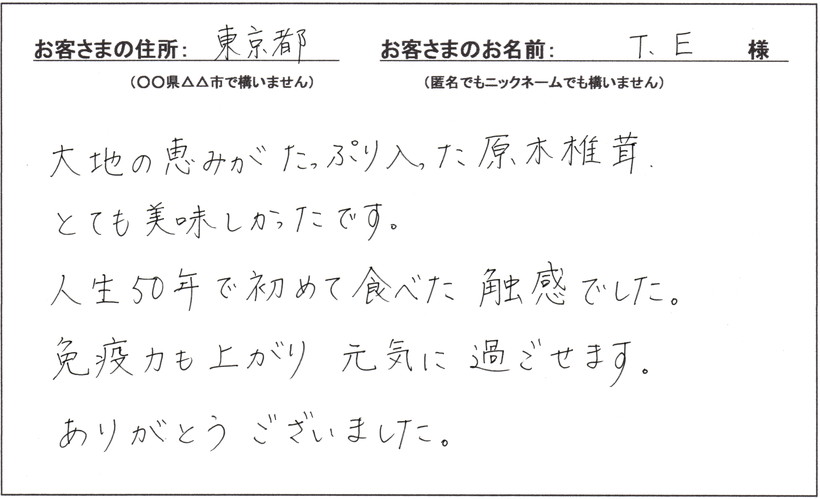 お客さまの住所: 東京都 お客さまのお名前: T. E 様
(〇〇県△△市で構いません) (匿名でもニックネームでも構いません)
大地の恵みがたっぷり入った原木椎茸.
とても美味しかったです。
人生50年で初めて食べた触感でした。
免疫力も上がり元気に過ごせます。
ありがとうございました。